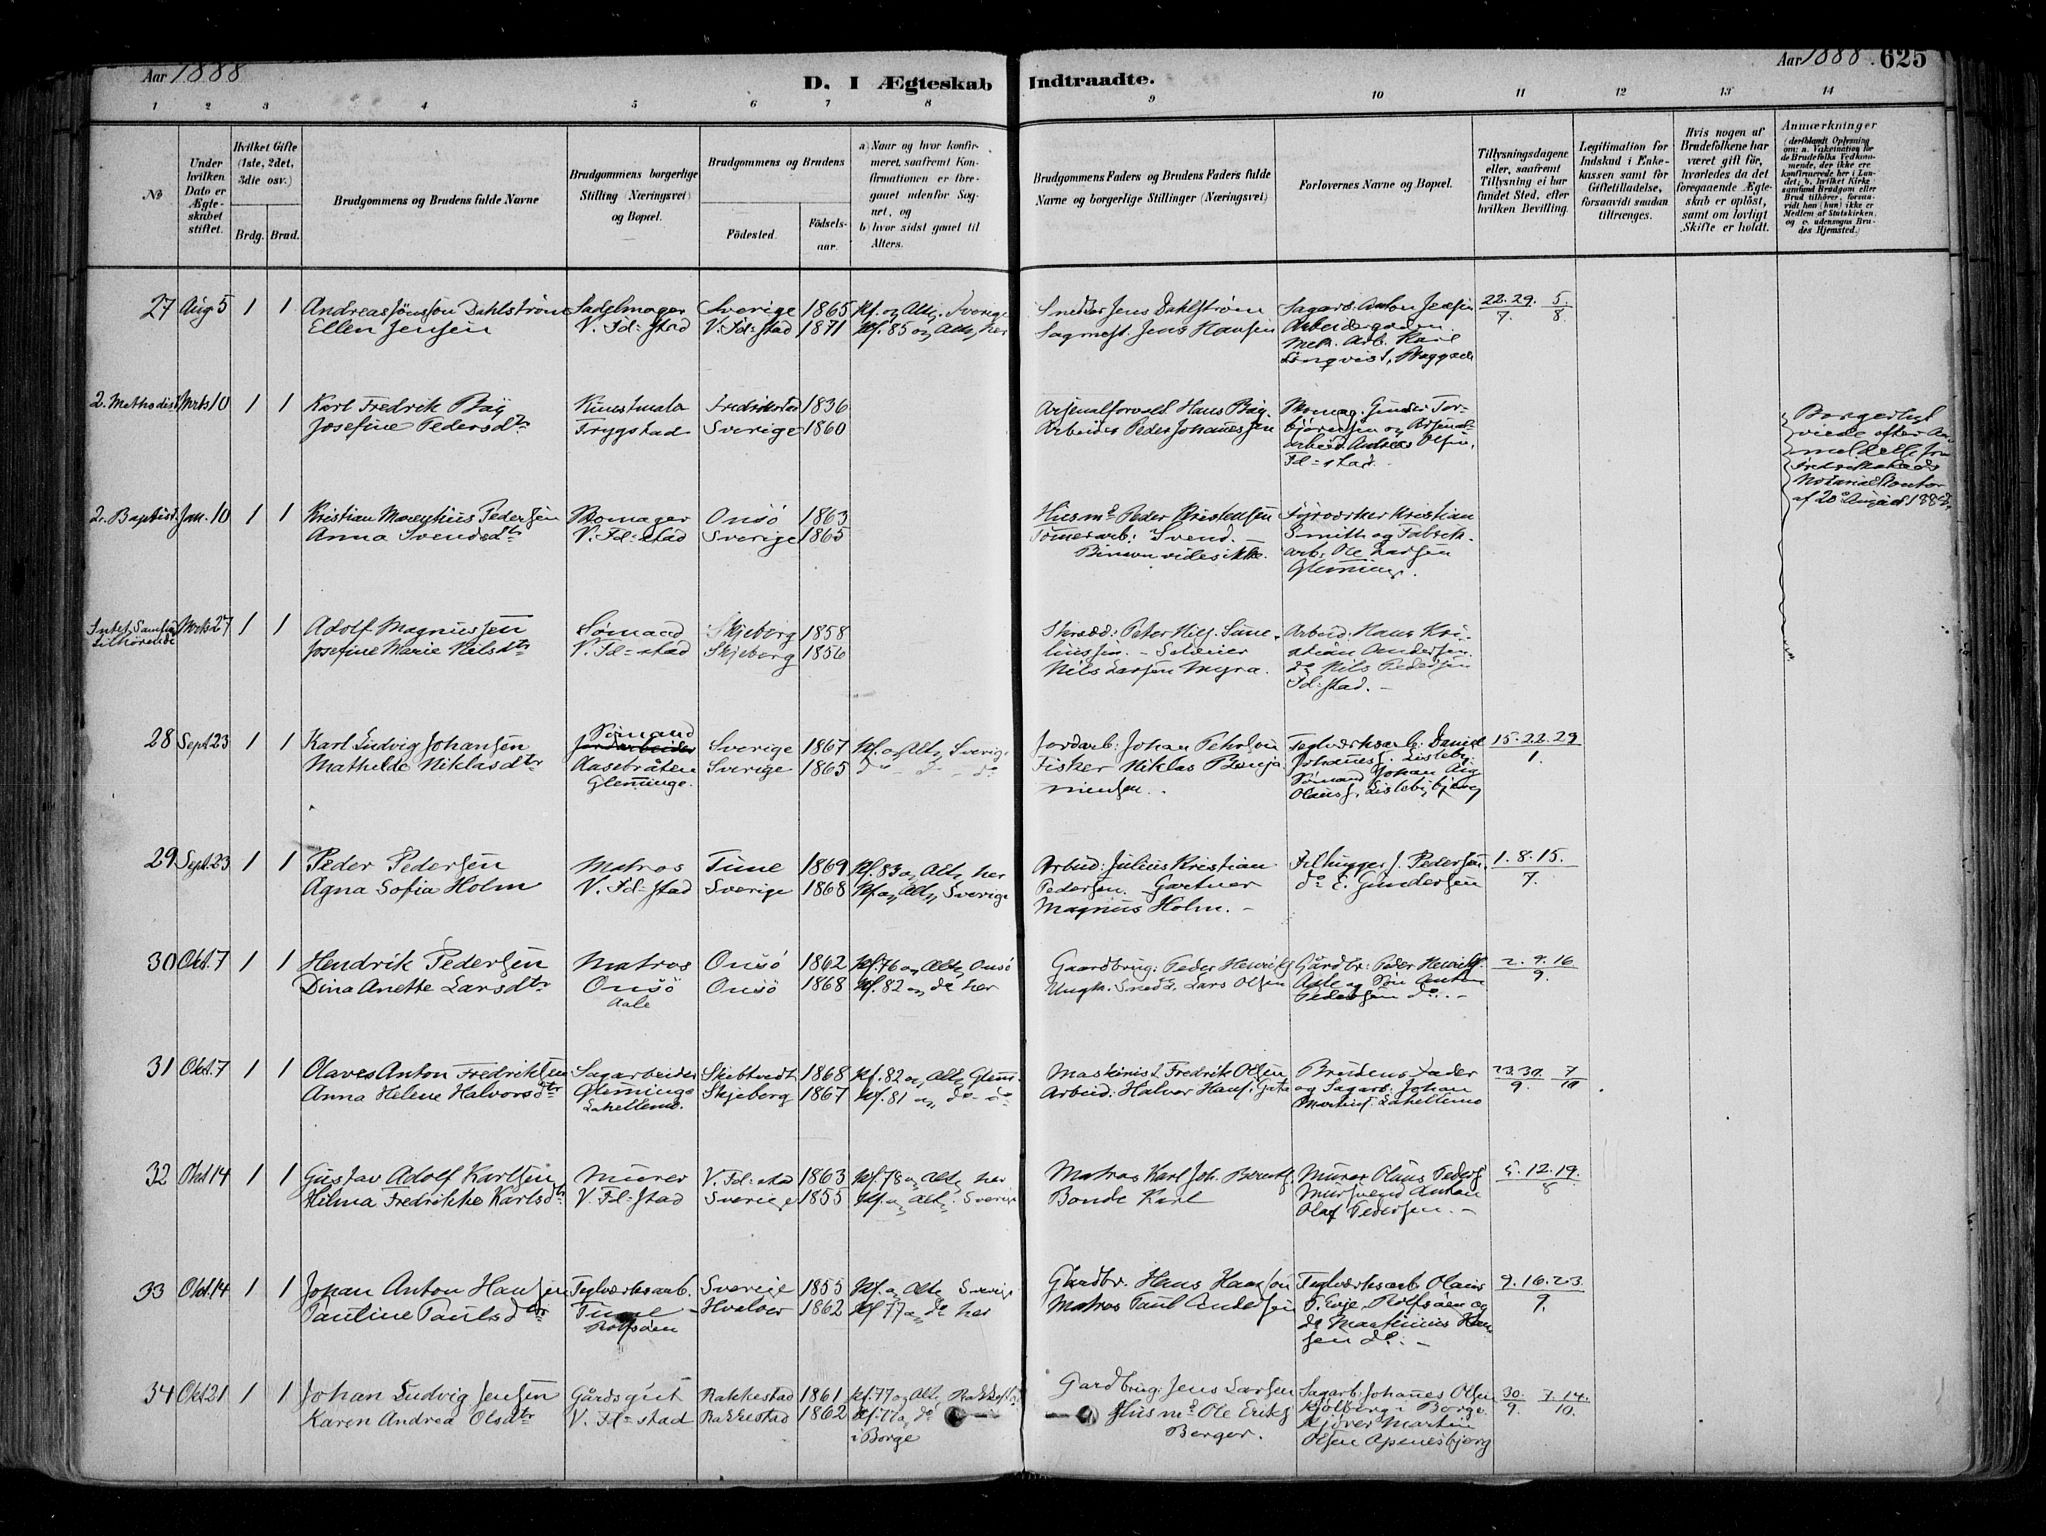 Aar 1888
D. I Ægteskab Indtraadte.
Aar 1888. 625
1 2 3 4 5 6 7 8 9 10 11 12 13 14
No
Under hvilken Dato er Ægteskabet stiftet.
Hvilket Gifte (1ste, 2det, 3die osv.)
Brdg. Brud.
Brudgommens og Brudens fulde Navne
Brudgommens borgerlige Stilling (Næringsvei) og Bopæl.
Brudgommens og Brudens
Födested. Födselsaar.
a) Naar og hvor konfirmeret, saafremt Konfirmationen er foregaaet udenfor Sognet, og
b) hvor sidst gaaet til Alters.
Brudgommens Faders og Brudens Faders fulde Navne og borgerlige Stillinger (Næringsvei)
Forlovernes Navne og Bopæl.
Tillysningsdagene eller, saafremt Tillysning ei har fundet Sted, efter hvilken Bevilling.
Legitimation for Indskud i Enkekassen samt for Giftetilladelse, forsaavidt saadan tiltrænges.
Hvis nogen af Brudefolkene har været gift för, hvorledes da det foregaaende Ægteskab er oplöst, samt om lovligt Skifte er holdt.
Anmærkninger
27 Aug 5 1 1 Andreas Jönsson Dahlström Sadelmager Sverige 1865 Kf. og Alt. Sverige Snedker Jens Dahlström Sagarb. Anton Jensen 22. 29. 5
Ellen Jensen V. Fd=stad V. Fd=stad 1871 Kf. 85 og Alt. her Sagmest. Jens Hansen Arbeidergaden. 7. 8.
Mek. Arb. Karl
2. Methodist Mrts 10 1 1 Karl Fredrik Bäy Fredrikstad 1836 Arsenalforvalt. Hans Bäy.
Josefine Pedersdtr Trygstad Sverige 1860 Arbeider Peder Johannessen
Andreas Olsen,
Fd=stad.
Borgerligt
viede efter An-
meldelse fra
Fredrikstads
Notarialkontor
af 20de August 1888.
2. Baptist. Jan. 10 1 1 Kristian Marentius Pedersen Skomager Onsö 1863 Husmd Peder Kristensen Fyrverker Kristian
Anna Svendsdtr V. Fd=stad Sverige 1865 Tömerarb: Svend. — Smith og Fabrik-
Binavn vides ikke. arb: Ole Larsen
Glemminge.
Intet Samfund tilhörende Mrts 27 1 1 Adolf Magnussen Sömand Skjeberg 1858 Arbeid: Hans Kri-
Josefine Marie Nilsdtr V. Fd=stad Skjeberg 1856 stian Andersen.
Nils Larsen Myra. do Nils Pedersen
Fd=stad. —
28 Sept 23 1 1 Karl Ludvig Johansen Sömand Jordarbeider Sverige 1867 Kf. og Alt. Sverige Jordarb: Johan Teglverksarb: Daniel 15. 22. 29
Mathilde Niklasdtr Aasebråten Sverige 1865 do — do — do Fisker Niklas Benja- Johannes. Lisleby. 1.
Glemminge. minsen. Sömand Johan Aug
29 Sept. 23 1 1 Peder Pedersen Matros Tune 1869 Kf. 83 og Alt. her Arbeid: Julius Kristian Filhugger J. Pedersen. 1. 8. 15.
Agna Sofia Holm V. Fd=stad Sverige 1868 Kf. og Alt. Sverige Pedersen. Gartner do E. Gundersen 7.
Magnus Holm. —
30 Okt. 7 1 1 Hendrik Pedersen Matros Onsö 1862 Kf. 76 og Alt. Onsö Gaardbrug: Peder Henriks. Gårdbr: Peder Henriks. 2. 9. 16
Dina Anette Larsdtr Onsö Onsö 1868 Kf. 82 og do her Ungk. Smed L. Lars Olsen Aale og Anton 9.
Aale Pedersen do. —
31 Okt. 7 1 1 Olaves Anton Fredriksen Sagarbeider Skibtvedt 1868 Kf. 82 og Alt. Glem. Maskinist Fredrik Olsen Brudens Fader 23. 30. 7
Anna Helene Halvorsdtr Glemminge Skjeberg 1867 Kf. 81 og do — do Arbeid: Halvor Hans. og Sagarb: Johan 9. 10
Lahellemo. Martins. Lahellemo
32 Okt 14 1 1 Gustav Adolf Karlsen Murer V. Fd=stad 1863 Kf. 78 og Alt. her Matros Karl Joh. Berents. Murer Olaus Peders. 5. 12. 19.
Hilma Fredrikke Karlsdtr V. Fd=stad Sverige 1855 Kf. og Alt. Sverige Bonde Karl Mursvend Anton 8
Olaf Pedersen. —
33 Okt. 14 1 1 Johan Anton Hansen Teglverksarb. Sverige 1855 Kf. og Alt. Sverige Gårdbr. Hans Hansson Teglverksarb. Olaus 9. 16. 23
Pauline Paulsdtr Tune Hvaler 1862 Kf 77 og do her Matros Paul Andersen T. Evje, Rolfsöen og 9.
Rolfsöen do Martinius Han-
sen do. —
34 Okt 21 1 1 Johan Ludvig Jensen Gårdsgut Rakkestad 1861 Kf. 77 og Alt. Rakkest. Gardbrug: Jens Larsen Sagarb: Johannes Olsen 30. 7. 14.
Karen Andrea Olsdtr V. Fd=stad Rakkestad 1862 Kf. 77 og do Husmd Ole Eriks. Kjölberg i Borge. 9. 10.
i Borge Berger. Kjörer Martin
Olsen Apenesbjerg